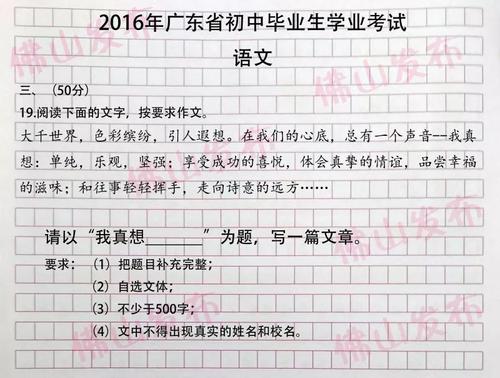 2016年广东省初中毕业生学业考试
语文
三、（50分）
19.阅读下面的文字，按要求作文。
大千世界，色彩缤纷，引人遐想。在我们的心底，总有一个声音--我真
想：单纯，乐观，坚强；享受成功的喜悦，体会真挚的情谊，品尝幸福
的滋味；和往事轻轻挥手，走向诗意的远方……
请以“我真想______”为题，写一篇文章。
要求：（1）把题目补充完整；
（2）自选文体；
（3）不少于500字；
（4）文中不得出现真实的姓名和校名。
佛山发布
佛山发布
佛山发布
佛山发布
佛山发布